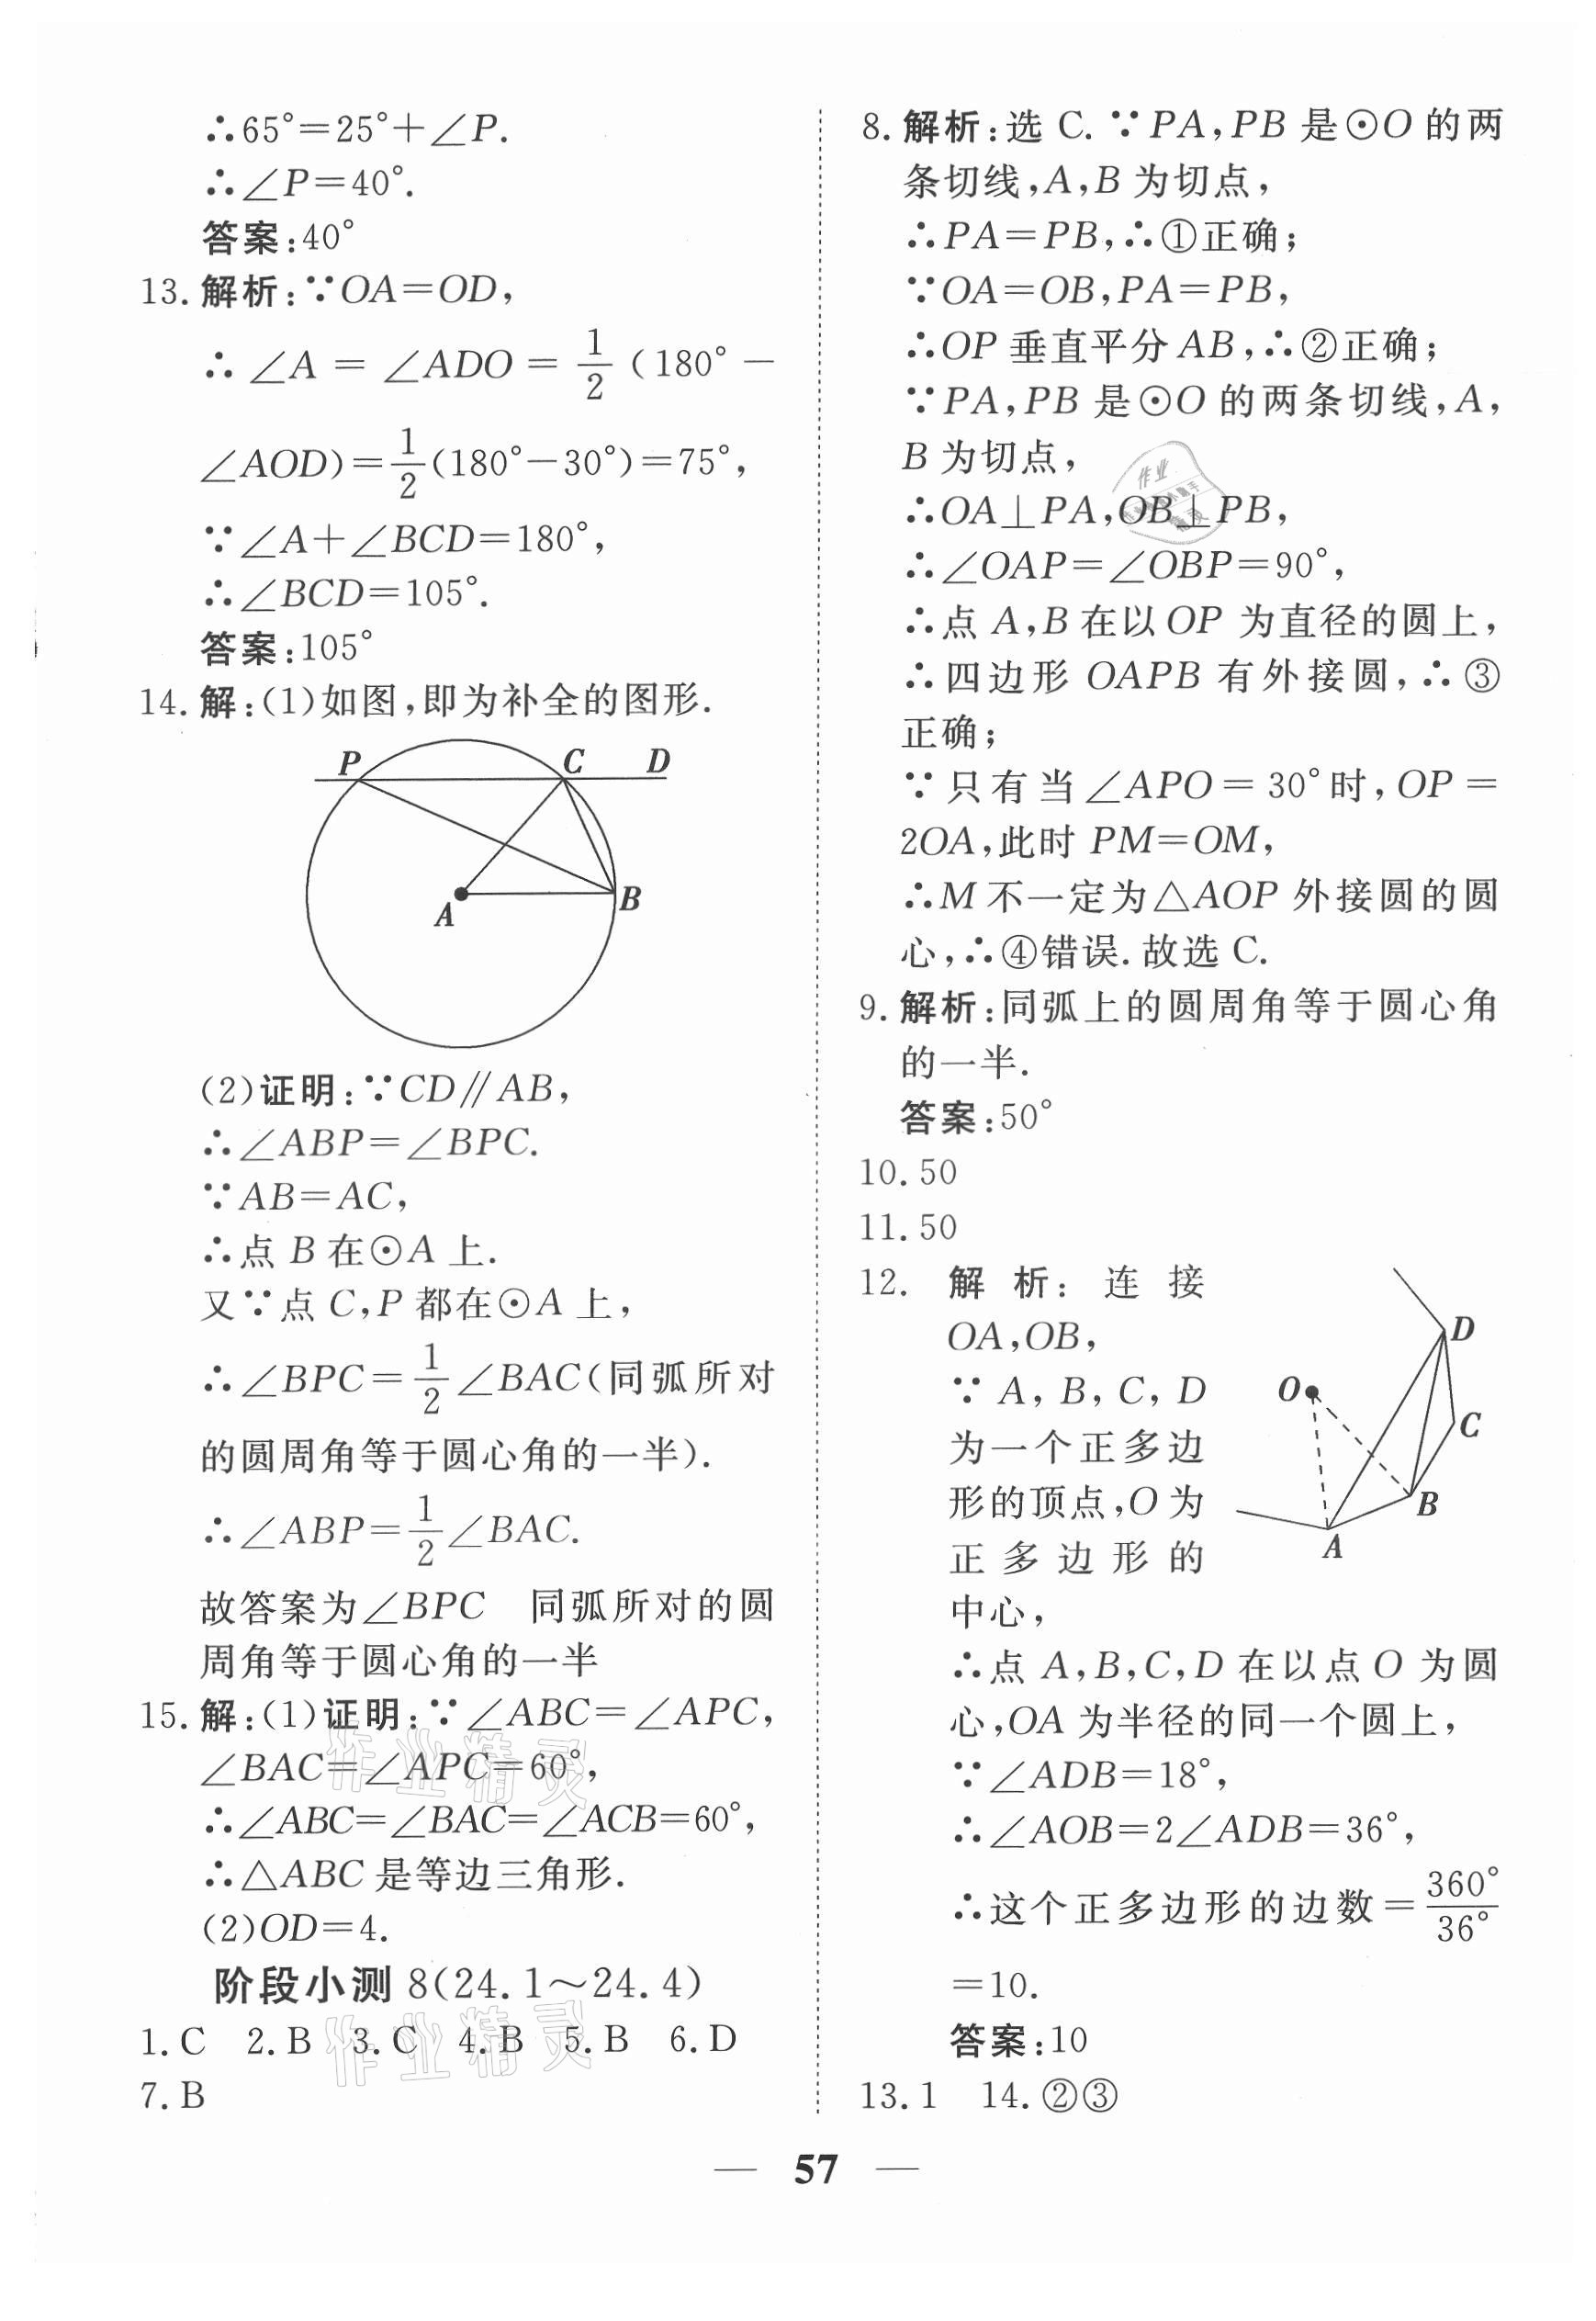 ∴65°=25°+∠P.
∴∠P=40°.
答案:40°
13. 解析:∵OA=OD,
∴ ∠A = ∠ADO = 1/2 (180° -
∠AOD)=1/2(180°-30°)=75°,
∵∠A+∠BCD=180°,
∴∠BCD=105°.
答案:105°
14. 解:(1)如图,即为补全的图形.
P
C
D
A
B
(2)证明:∵CD∥AB,
∴∠ABP=∠BPC.
∵AB=AC,
∴点 B 在⊙A 上.
又∵点 C,P 都在⊙A 上,
∴∠BPC=1/2∠BAC(同弧所对
的圆周角等于圆心角的一半).
∴∠ABP=1/2∠BAC.
故答案为∠BPC 同弧所对的圆
周角等于圆心角的一半
15. 解:(1)证明:∵∠ABC=∠APC,
∠BAC=∠APC=60°,
∴∠ABC=∠BAC=∠ACB=60°,
∴△ABC 是等边三角形.
(2)OD=4.
阶段小测 8(24.1~24.4)
1.C 2.B 3.C 4.B 5.B 6.D
7.B
8. 解析:选 C. ∵PA,PB 是⊙O 的两
条切线,A,B 为切点,
∴PA=PB,∴①正确;
∵OA=OB,PA=PB,
∴OP 垂直平分 AB,∴②正确;
∵PA,PB 是⊙O 的两条切线,A,
B 为切点,
∴OA⊥PA,OB⊥PB,
∴∠OAP=∠OBP=90°,
∴点 A,B 在以 OP 为直径的圆上,
∴四边形 OAPB 有外接圆,∴③
正确;
∵只有当∠APO=30°时,OP=
2OA,此时 PM=OM,
∴M 不一定为△AOP 外接圆的圆
心,∴④错误.故选 C.
9. 解析:同弧上的圆周角等于圆心角
的一半.
答案:50°
10. 50
11. 50
12. 解析:连接
OA,OB,
∵ A, B, C, D
为一个正多边
形的顶点,O 为
正多边形的
中心,
D
O
C
B
A
∴点 A,B,C,D 在以点 O 为圆
心,OA 为半径的同一个圆上,
∵∠ADB=18°,
∴∠AOB=2∠ADB=36°,
∴这个正多边形的边数=360°/36°
=10.
答案:10
13. 1 14. ②③
— 57 —
作业精灵
作业精灵
作业
精灵